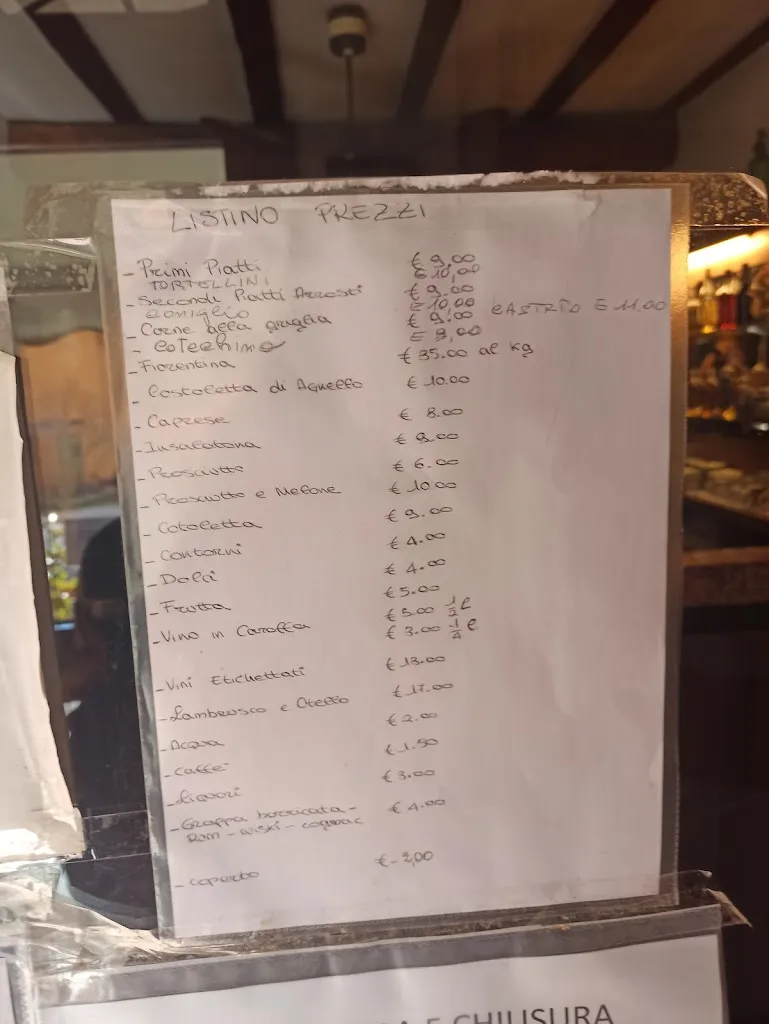 LISTINO PREZZI
- Primi Piatti € 9,00
TORTELLINI € 10,00
- Secondi Piatti Arrosti € 9.00
Coniglio € 10,00
- Carne alla griglia € 9.00 CASTRTO € 11.00
- Cotechino € 9,00
- Fiorentina € 35.00 al kg
- Costoletta di Agnello € 10.00
- Caprese € 8.00
- Insalatona € 9.00
- Prosciutto € 6.00
- Prosciutto e Melone € 10.00
- Cotoletta € 9.00
- Contorni € 4.00
- Dolci € 4.00
- Frutta € 5.00
- Vino in Caraffa € 5.00 1/2 l
€ 3.00 1/4 l
- Vini Etichettati € 13.00
- Lambrusco e Otello € 17.00
- Acqua € 2.00
- Caffè € 1.50
- Liquori € 3.00
- Grappa barricata - € 4.00
Rum - wiski - cognac
- coperto € - 2,00
E CHIUSURA